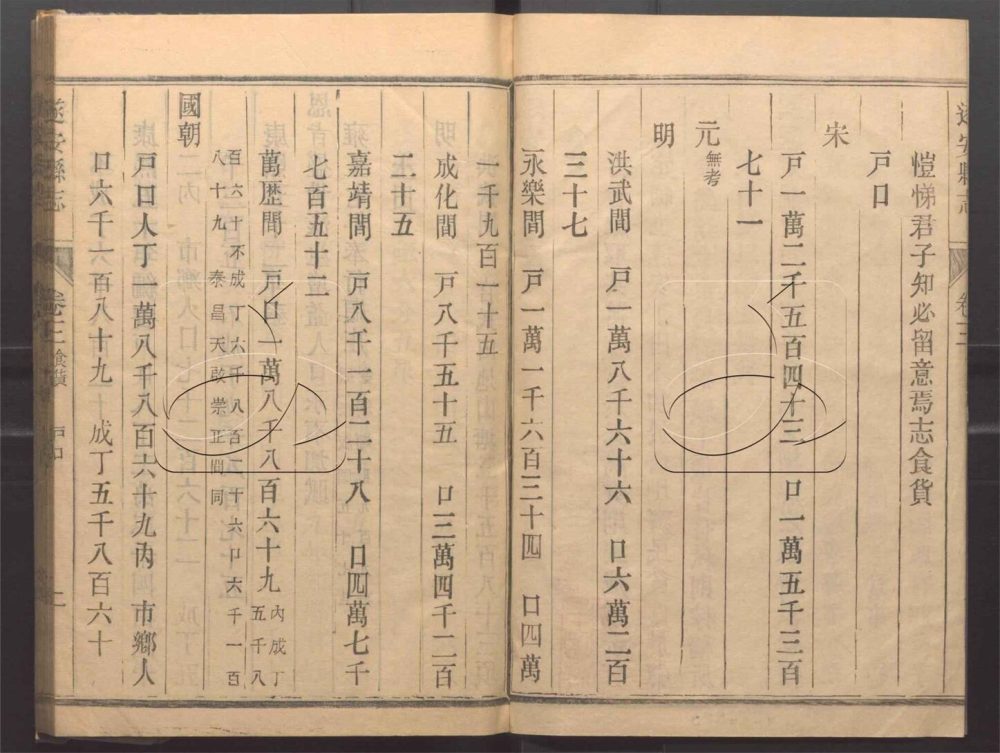 愷悌君子知必留意焉志食貨
戶口
宋
戶一萬二千五百四十三 口一萬五千三百
七十一
元無考
明
洪武間 戶一萬八千六十六 口六萬二百
三十七
永樂間 戶一萬一千六百三十四 口四萬
一千九百一十五
成化間 戶八千五十五 口三萬四千二百
二十五
嘉靖間 戶八千一百二十八 口四萬七千
七百五十三
萬歷間 戶口一萬八千八百六十九內成丁五千八
百六十不成丁六千八百二十六口六千一百
八十九 泰昌天啟崇正間同
國朝
戶口人丁一萬八千八百六十九內市鄉人
口六千六百八十九 成丁五千八百六十
遂安縣志
卷三
食貨 戶口
遂安縣志
卷三